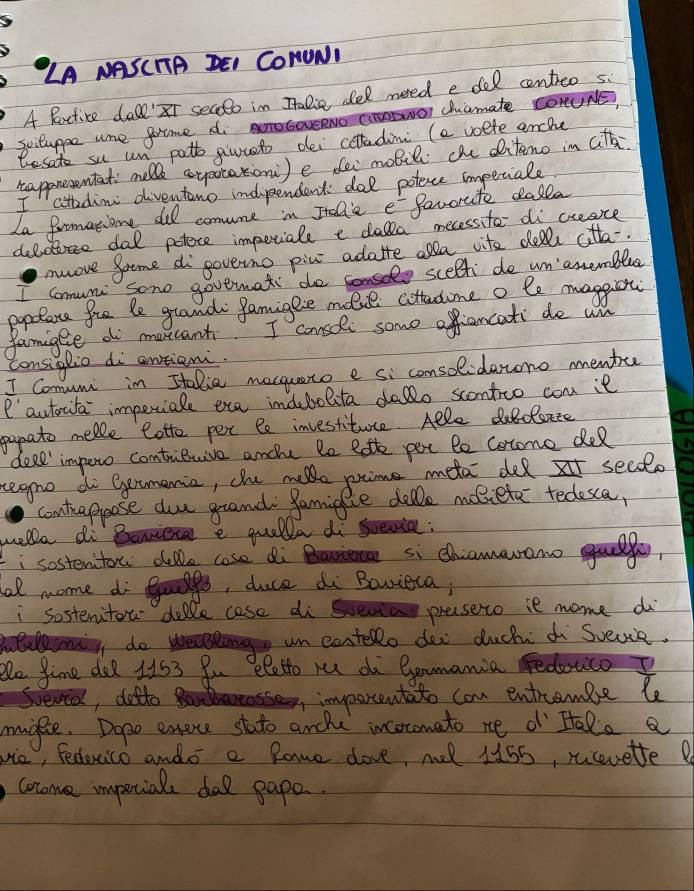 LA NASCITA DEI COMUNI
A Partire dall'XI secolo in Italia del nored e del centreo si
sviluppa una forma di AUTOGOVERNO CITTADINO chiamate COMUNE,
basata su un patto giurato dei cittadini (a volte anche
rappresentati nelle corporazioni) e dei nobili che abitano in città.
I cittadini diventano indipendenti dal potere imperiale.
La formazione del comune in Italia e favorita dalla
debolezza dal potere imperiale e dalla necessita di creare
nuove forme di governo più adatte alla vita delle citta.
I comuni sono governati da consoli scelti da un'assemblea
popolare fra le grandi famiglie nobili cittadine o le maggiori
famiglie di mercanti. I consoli sono affiancati da un
consiglio di anziani.
I Comuni in Italia nacquero e si consolidarono mentre
l'autorità imperiale era indebolita dallo scontro con il
papato nella lotta per le investiture. Alla debolezza
dell'impero contribuiva anche la lotta per la corona del
regno di Germania, che nella prima metà del XII secolo
contrappose due grandi famiglie della nobiltà tedesca,
quella di Baviera e quella di Svevia:
- i sostenitori della casa di Baviera si chiamavano guelfi,
dal nome di Guelfo, duca di Baviera;
i sostenitori della casa di Svevia presero il nome di
ghibellini, da Weibling, un castello dei duchi di Svevia.
lla fine del 1153 fu eletto re di Germania Federico I
Svevia, detto Barbarossa, imparentato con entrambe le
miglie. Dopo essere stato anche incoronato re d'Italia a
via, Federico andò a Roma dove, nel 1155, ricevette l
corona imperiale dal papa.
BIOLOGIA